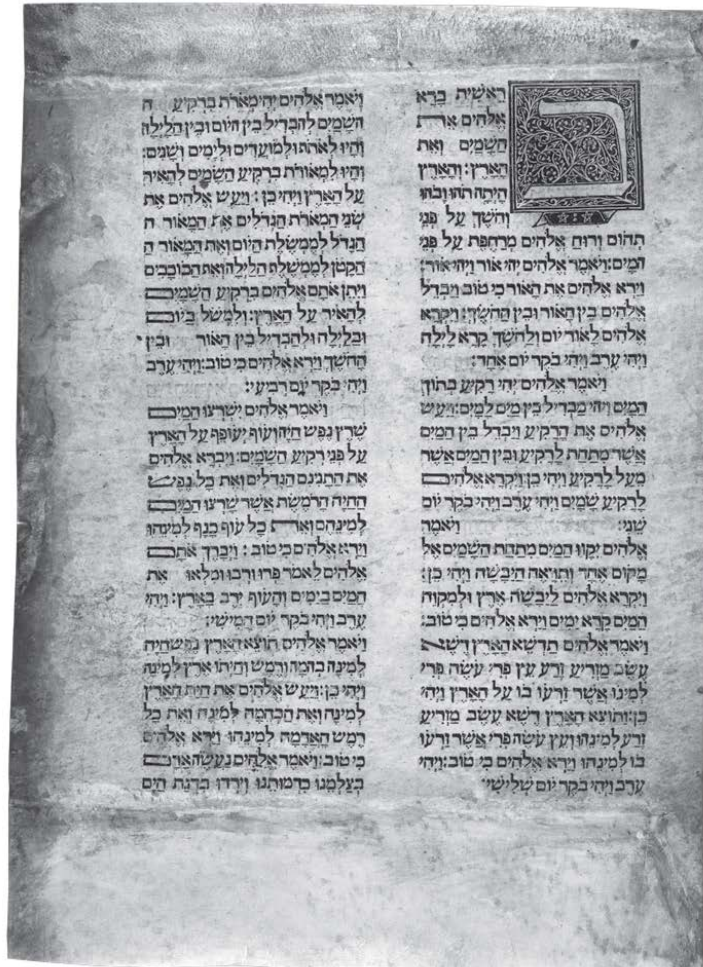 ב
ראשית ברא
אלהים את
השמים ואת
הארץ: והארץ
היתה תהו ובהו
וחשך על פני
תהום ורוח אלהים מרחפת על פני
המים: ויאמר אלהים יהי אור ויהי אור:
וירא אלהים את האור כי טוב ויבדל
אלהים בין האור ובין החשך: ויקרא
אלהים לאור יום ולחשך קרא לילה
ויהי ערב ויהי בקר יום אחד:
ויאמר אלהים יהי רקיע בתוך
המים ויהי מבדיל בין מים למים: ויעש
אלהים את הרקיע ויבדל בין המים
אשר מתחת לרקיע ובין המים אשר
מעל לרקיע ויהי כן: ויקרא אלהים
לרקיע שמים ויהי ערב ויהי בקר יום
שני: ויאמר
אלהים יקוו המים מתחת השמים אל
מקום אחד ותראה היבשה ויהי כן:
ויקרא אלהים ליבשה ארץ ולמקוה
המים קרא ימים וירא אלהים כי טוב:
ויאמר אלהים תדשא הארץ דשא
עשב מזריע זרע עץ פרי עשה פרי
למינו אשר זרעו בו על הארץ ויהי
כן: ותוצא הארץ דשא עשב מזריע
זרע למינהו ועץ עשה פרי אשר זרעו
בו למינהו וירא אלהים כי טוב: ויהי
ערב ויהי בקר יום שלישי
ויאמר אלהים יהי מארת ברקיע ה
השמים להבדיל בין היום ובין הלילה
והיו לאתת ולמועדים ולימים ושנים:
והיו למאורת ברקיע השמים להאיר
על הארץ ויהי כן: ויעש אלהים את
שני המארת הגדלים את המאור ה
הגדל לממשלת היום ואת המאור ה
הקטן לממשלת הלילה ואת הכוכבים
ויתן אתם אלהים ברקיע השמים
להאיר על הארץ: ולמשל ביום
ובלילה ולהבדיל בין האור ובין
החשך וירא אלהים כי טוב: ויהי ערב
ויהי בקר יום רביעי:
ויאמר אלהים ישרצו המים
שרץ נפש חיה ועוף יעופף על הארץ
על פני רקיע השמים: ויברא אלהים
את התנינם הגדלים ואת כל נפש
החיה הרמשת אשר שרצו המים
למינהם ואת כל עוף כנף למינהו
וירא אלהים כי טוב: ויברך אתם
אלהים לאמר פרו ורבו ומלאו את
המים בימים והעוף ירב בארץ: ויהי
ערב ויהי בקר יום חמישי:
ויאמר אלהים תוצא הארץ נפש חיה
למינה בהמה ורמש וחיתו ארץ למינה
ויהי כן: ויעש אלהים את חית הארץ
למינה ואת הבהמה למינה ואת כל
רמש האדמה למינהו וירא אלהים
כי טוב: ויאמר אלהים נעשה אדם
בצלמנו כדמותנו וירדו בדגת הים